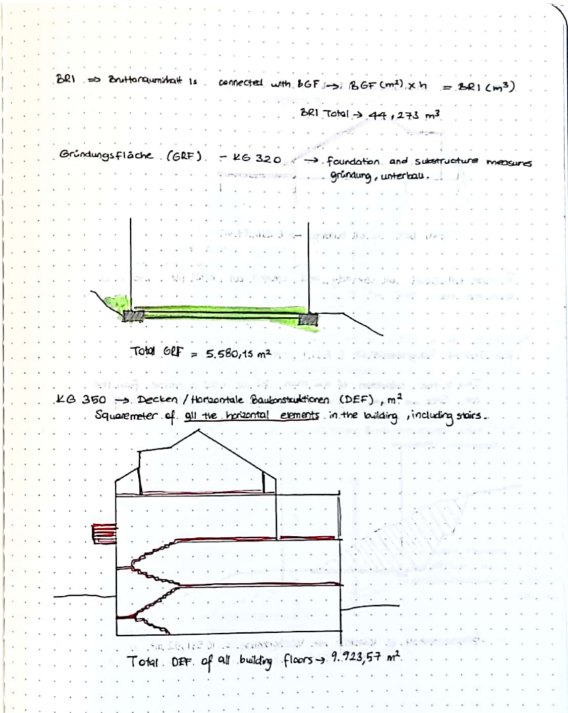 BRI => Bruttoraumihalt is connected with BGF → BGF (m²) x h = BRI (m³)
BRI Total → 44,273 m³
Gründungsfläche (GRF) - KG 320 → foundation and substructure measures
gründung, unterbau.
Total GRF = 5.580,15 m²
KG 350 → Decken / Horizontale Baukonstruktionen (DEF), m²
Squaremeter of all the horizontal elements in the building, including stairs.
Total DEF of all building floors → 9.923,57 m²